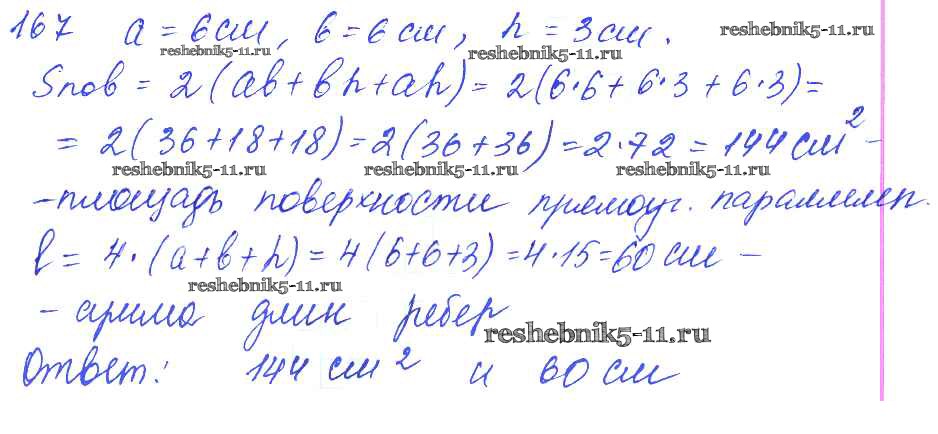 167 a = 6 см, b = 6 см, h = 3 см.
reshebnik5-11.ru reshebnik5-11.ru reshebnik5-11.ru
Sпов = 2(ab + bh + ah) = 2(6·6 + 6·3 + 6·3) =
= 2(36 + 18 + 18) = 2(36 + 36) = 2·72 = 144 см² -
reshebnik5-11.ru reshebnik5-11.ru reshebnik5-11.ru
- площадь поверхности прямоуг. параллелеп.
l = 4·(a + b + h) = 4(6 + 6 + 3) = 4·15 = 60 см -
reshebnik5-11.ru
- сумма длин ребер
reshebnik5-11.ru
Ответ: 144 см² и 60 см